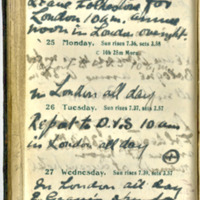 Leave Folkestone for
London 10 a.m. arrive
noon in London overnight.
25 Monday. Sun rises 7.36, sets 3.58
In London all day
26 Tuesday. Sun rises 7.37, sets 3.57
Report to D.V.S 10 am
in London all day
27 Wednesday. Sun rises 7.39, sets 3.57
In London all day